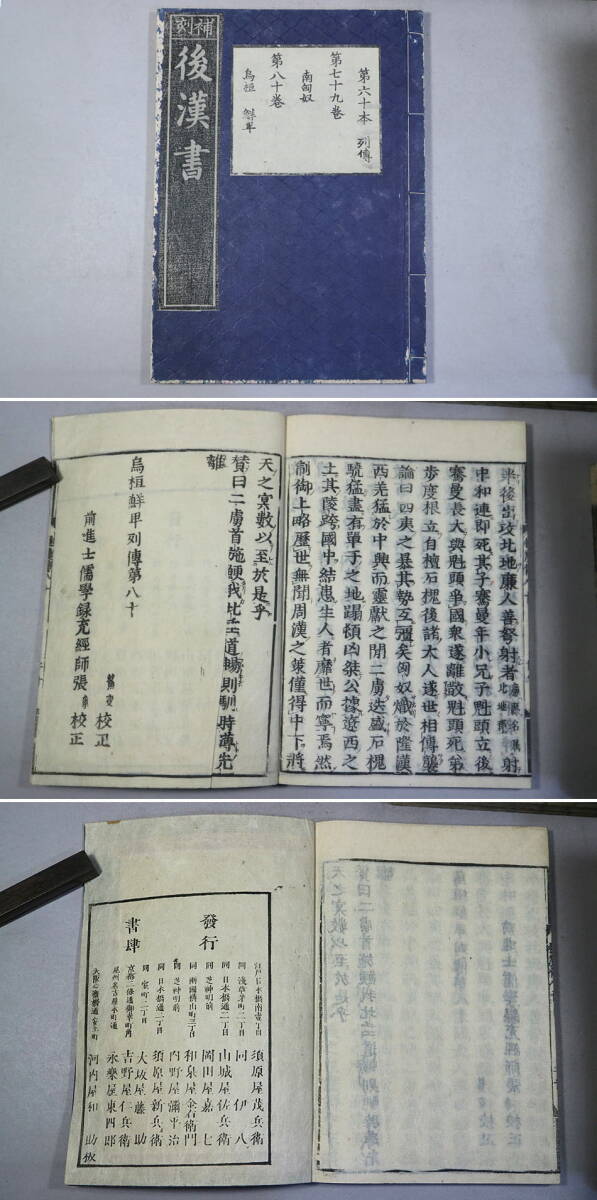 補刻
後漢書
第六十本 列傳
第七十九巻
南匈奴
第八十巻
烏桓 鮮卑
率後出攻北地廉人善弩射者射
中和連即死其子騫曼年小兄子魁頭立後
騫曼長大與魁頭爭國衆遂離散魁頭死弟
步度根立自檀石槐後諸大人遂世相傳襲
論曰四夷之暴其埶互彊矣匈奴熾於隆漢
西羌猛於中興而靈獻之閒二虜迭盛石槐
驍猛盡有單于之地蹋頓凶桀公據遼西之
土其陵跨中國結患生人者靡世而寧焉然
制御上略歷世無聞周漢之策僅得中下將
天之冥數以至於是乎
贊曰二虜首施鯁我北垂道暢則馴時薄先
離
烏桓鮮卑列傳第八十
前進士儒學錄充經師張 校正
校正
發行
書肆
江戸日本橋南壹丁目 須原屋茂兵衛
同 淺草茅町二丁目 同 伊八
同 日本橋通二丁目 山城屋佐兵衛
同 芝神明前 岡田屋嘉七
同 兩國橫山町三丁目 和泉屋金右衛門
同 芝神明前 内野屋彌平治
同 日本橋通二丁目 須原屋新兵衛
同 室町二丁目 大坂屋藤助
京都二條通御幸町角 吉野屋仁兵衛
尾州名古屋本町通 永樂屋東四郎
大阪心齋橋通安土町 河内屋和助